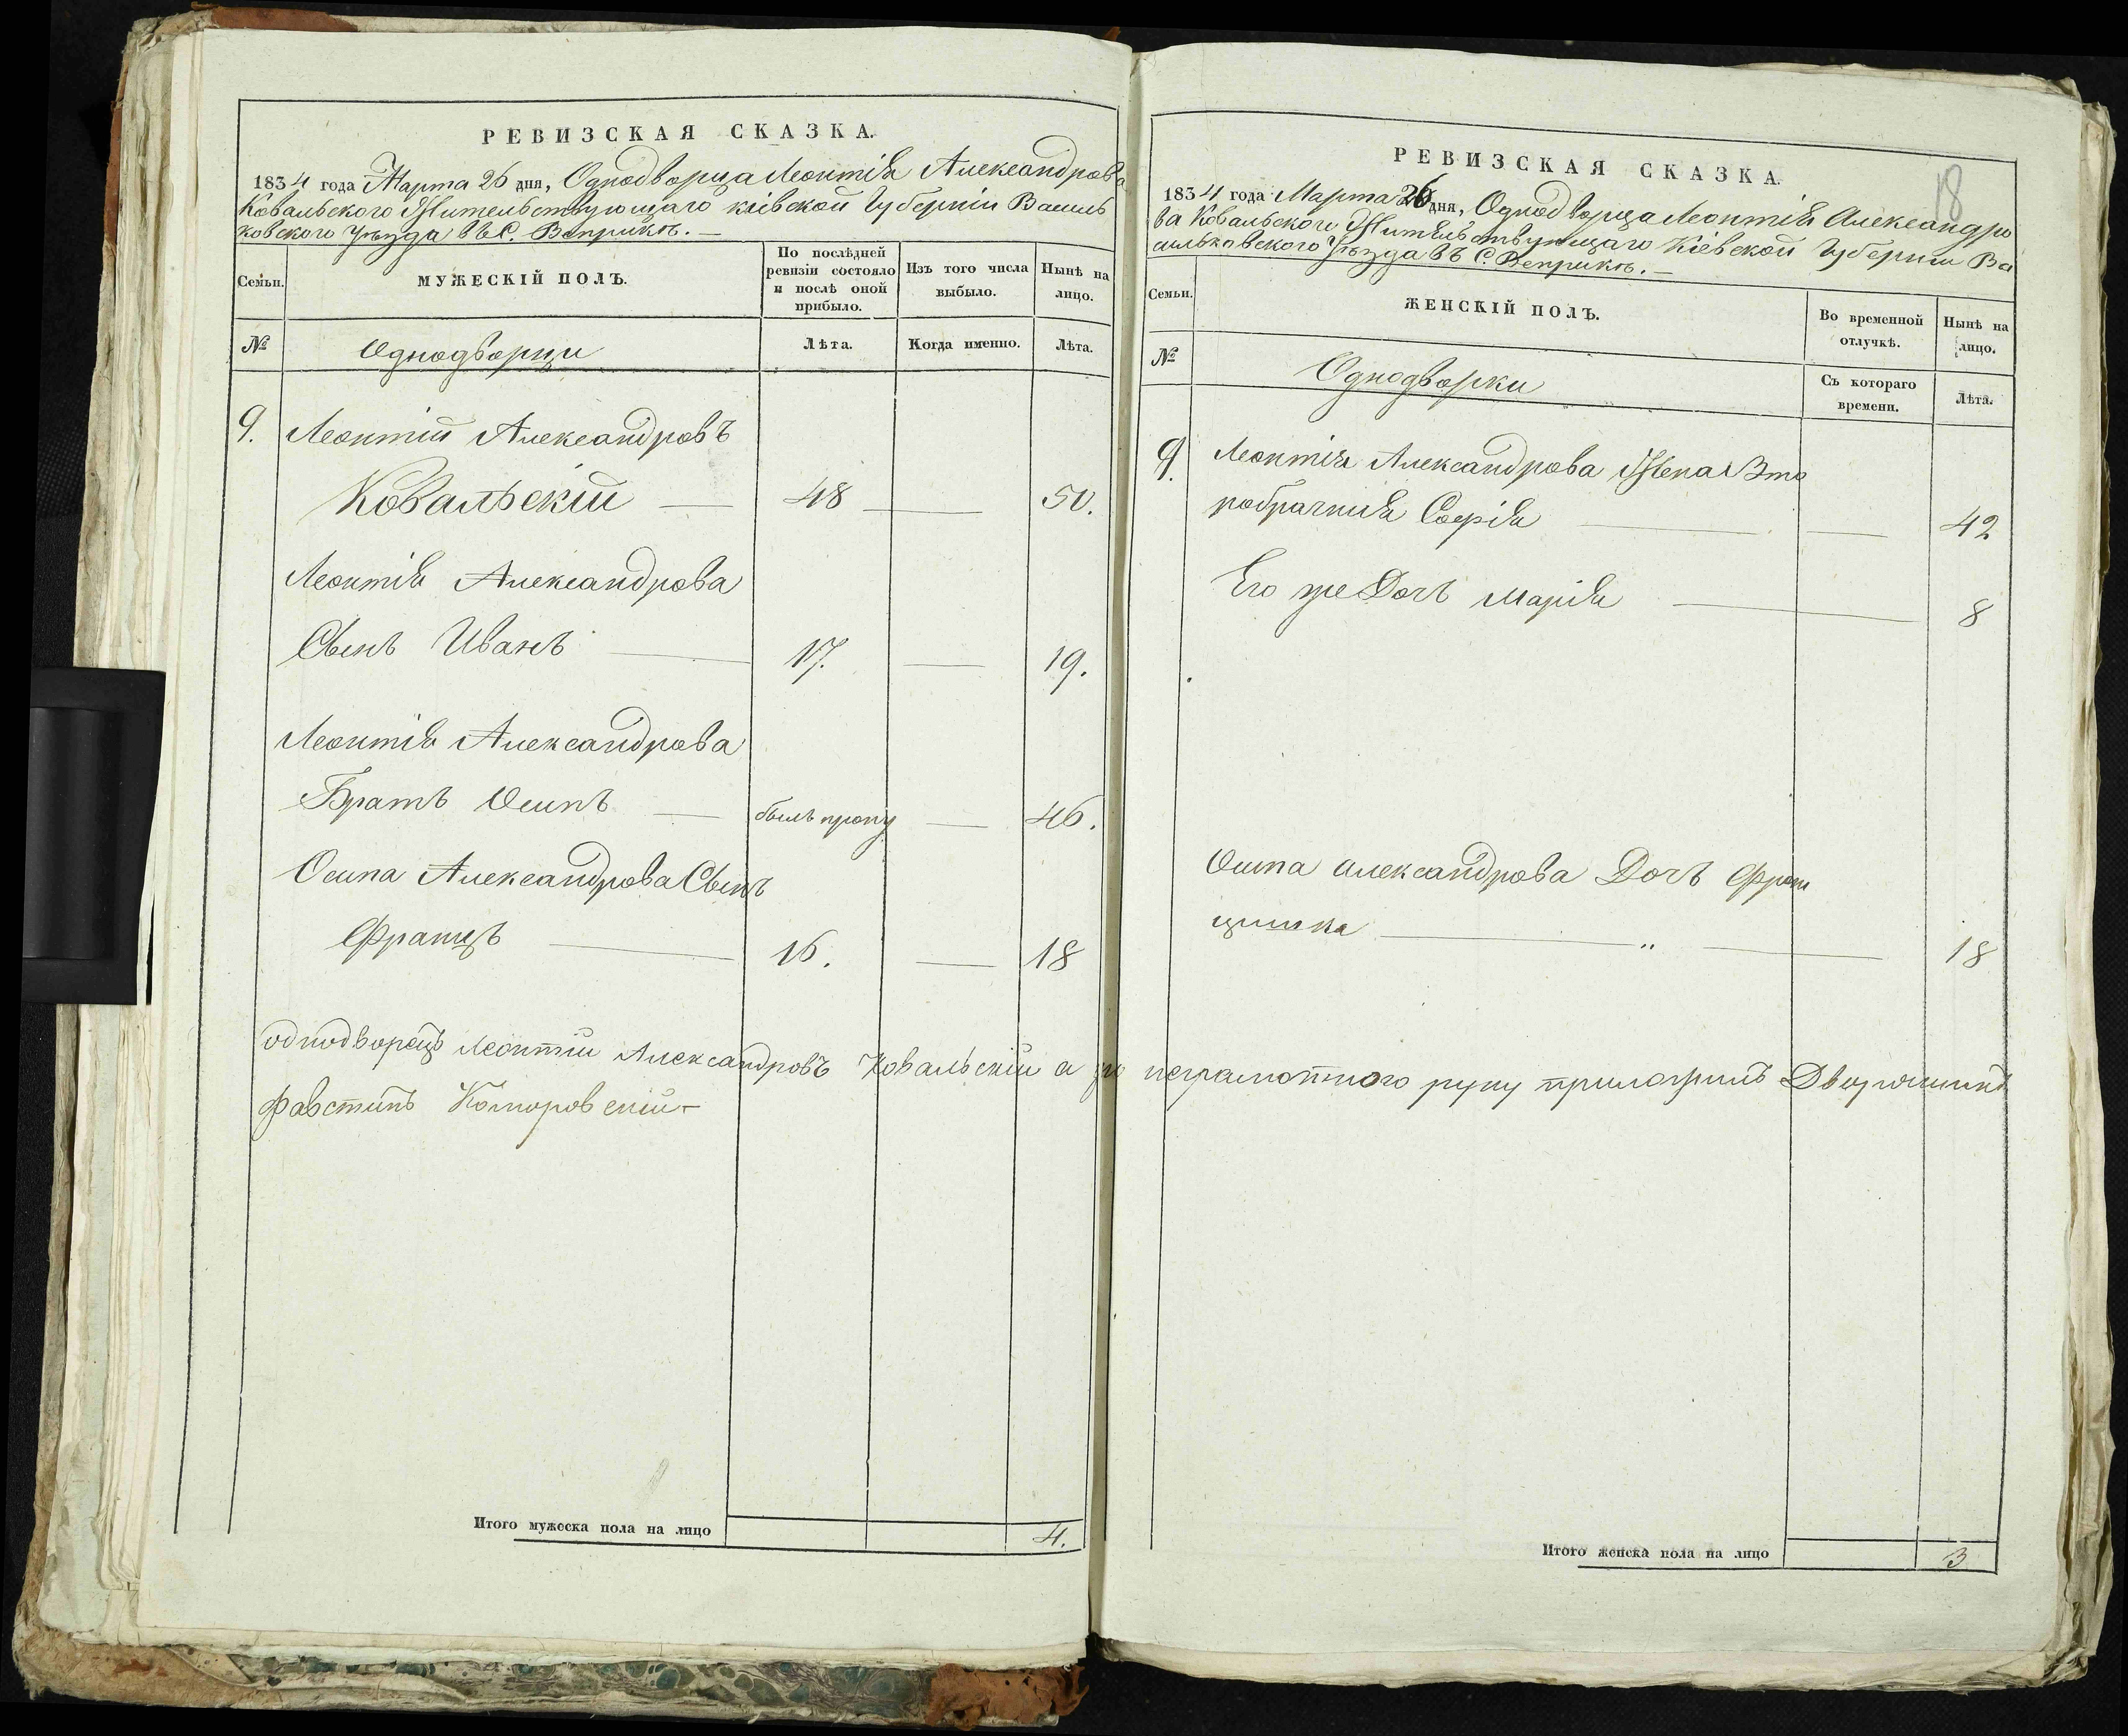 РЕВИЗСКАЯ СКАЗКА.
1834 года Марта 26 дня, Однодворца Леонтія Александрова
Ковальского Жительствующаго кіевской Губерніи Василь
ковского уѣзда въ С. Веприкѣ.
Семьи.
МУЖЕСКІЙ ПОЛЪ.
По послѣдней
ревизіи состояло
и послѣ оной
прибыло.
Изъ того числа
выбыло.
Нынѣ на
лицо.
№
Однодворцы
Лѣта.
Когда именно.
Лѣта.
9. Леонтій Александровъ
Ковальскій — 48 — 50.
Леонтія Александрова
Сынъ Иванъ — 17. — 19.
Леонтія Александрова
Братъ Осипъ — былъ пропу — 46.
Осипа Александрова Сынъ
Францъ — 16. — 18
однодворецъ Леонтій Александровъ Ковальскій а
Фавстинъ Коморовскій
Итого мужеска пола на лицо 4.
18
РЕВИЗСКАЯ СКАЗКА.
1834 года Марта 26 дня, Однодворца Леонтія Александро
ва Ковальского Жительствующаго Кіевской Губерніи Ва
сильковского Уѣзда въ С. Веприкѣ.
Семьи.
ЖЕНСКІЙ ПОЛЪ.
Во временной
отлучкѣ.
Нынѣ на
лицо.
№
Однодворки
Съ котораго
времени.
Лѣта.
9. Леонтія Александрова Жена Вто
робрачния Софія — — 42
Его же Дочъ Марія — 8
Осипа александрова Дочъ Фран
цишка — „ — 18
неграмотного руку приложилъ Дворянинъ
Итого женска пола на лицо 3